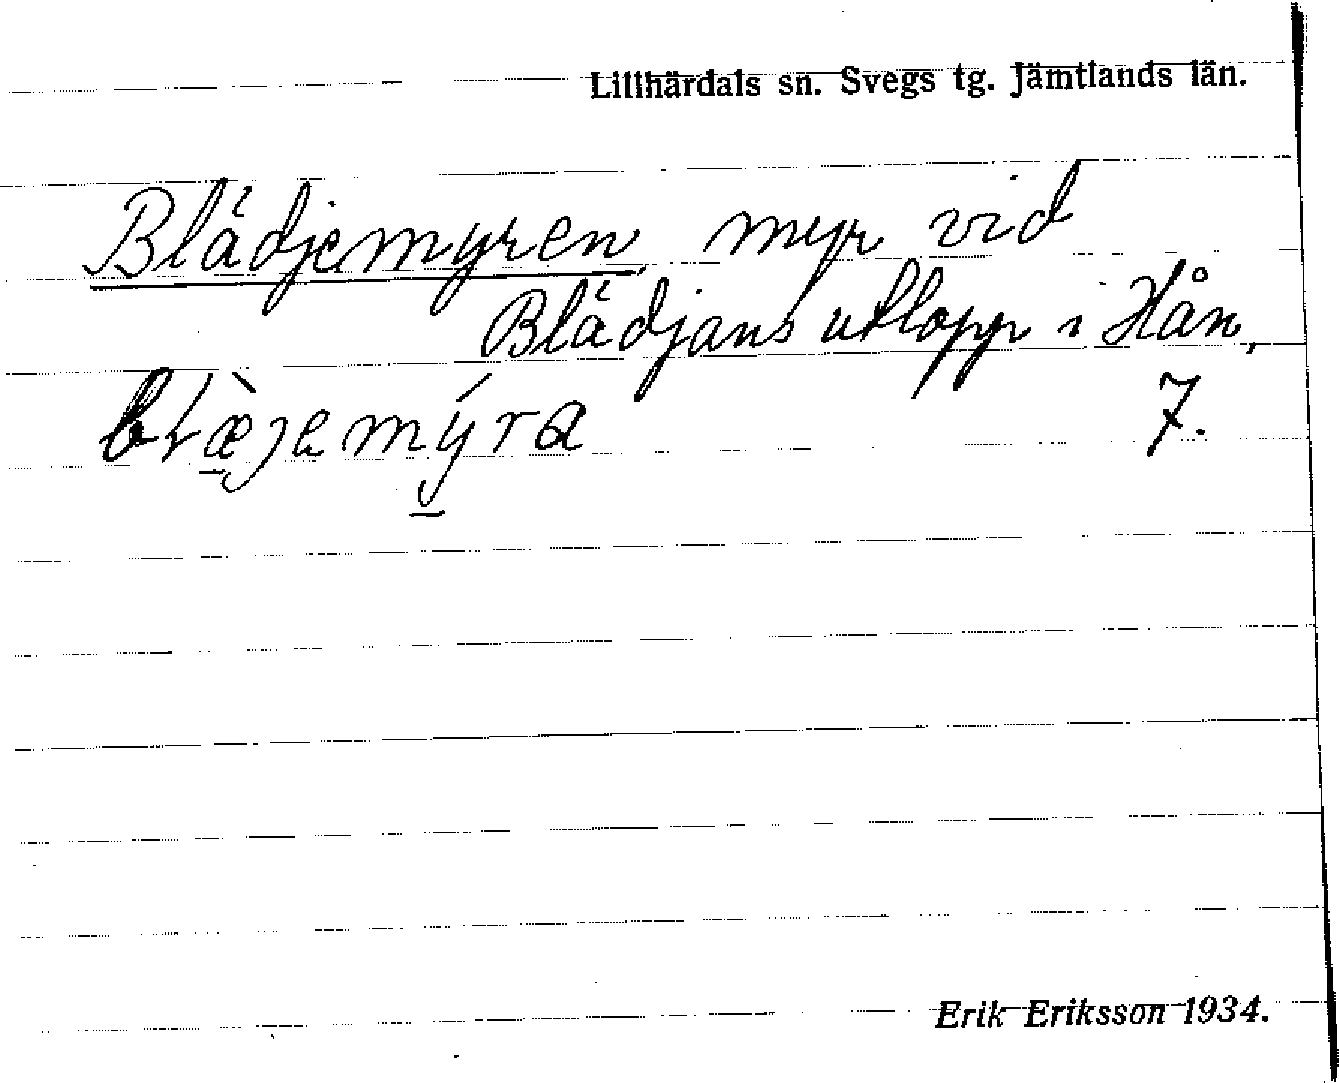 Lillhärdals sn. Svegs tg. Jämtlands län.
Blädjemyren, myr vid
Blädjans utlopp i Hån,
blæ̀jemýra 7.
Erik Eriksson 1934.